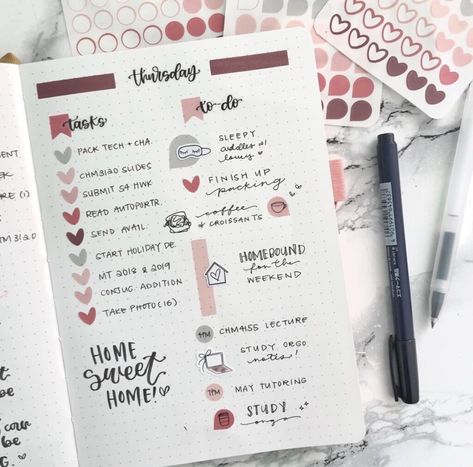 thursday
tasks
PACK TECH + CHA.
CHM3120 SLIDES
SUBMIT S4 HWK
READ AUTOPORTR.
SEND AVAIL.
START HOLIDAY DE.
MT 2018 & 2019
CONJUG. ADDITION
TAKE PHOTO (16)
HOME
sweet
HOME!
to-do
SLEPPY
cuddles w/
lovey
FINISH UP
packing
coffee
& CROISSANTS
HOMEBOUND
for the
WEEKEND
1PM CHM4155 LECTURE
STUDY ORGO
notes!
7PM MAY TUTORING
STUDY
orgo
ENT
M3120
be
be